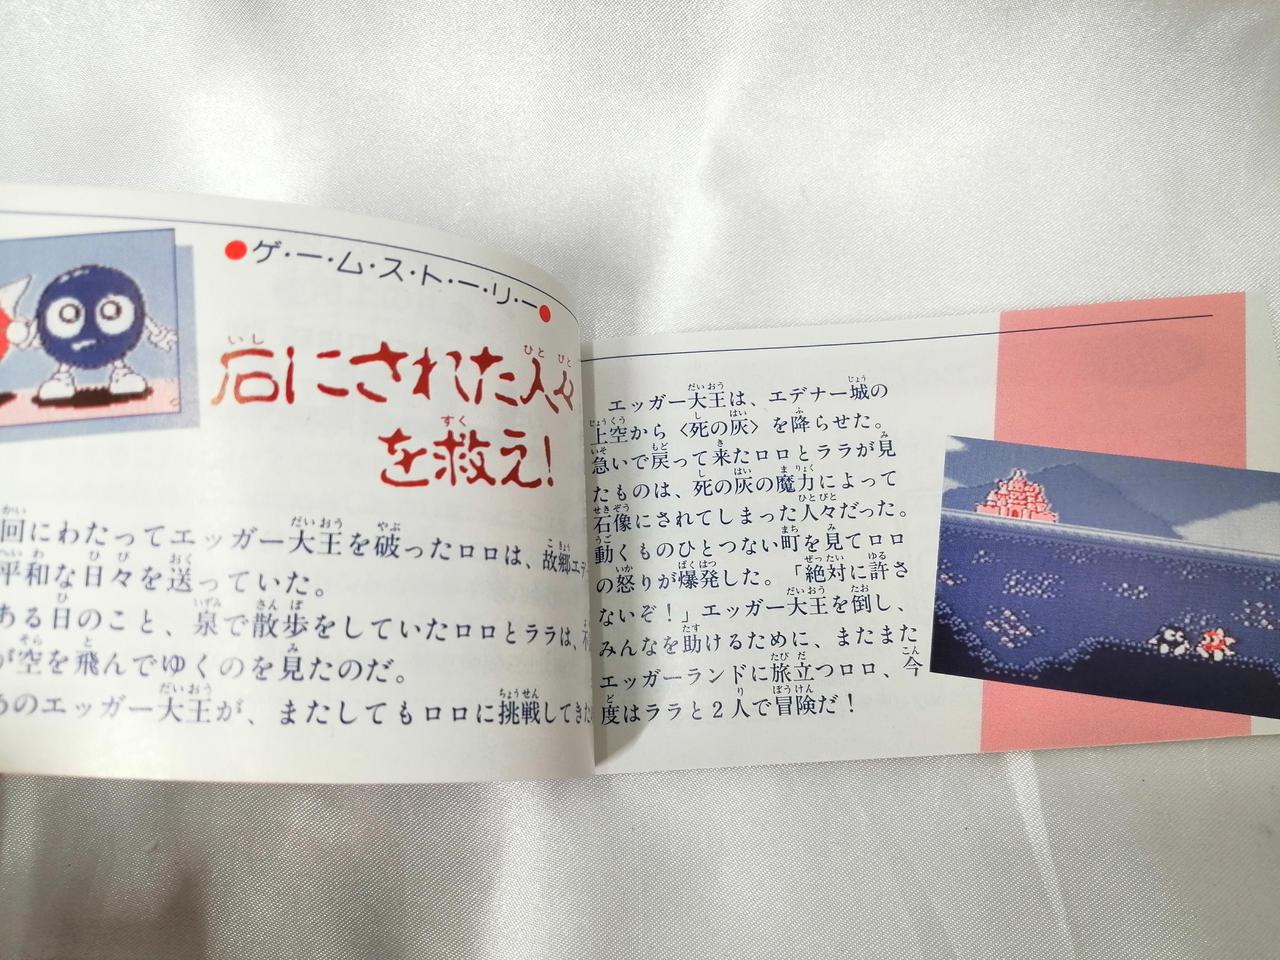 ●ゲ・ー・ム・ス・ト・ー・リ・ー●
石にされた人々
を救え!
回にわたってエッガー大王を破ったロロは、故郷エデ
平和な日々を送っていた。
ある日のこと、泉で散歩をしていたロロとララは、
が空を飛んでゆくのを見たのだ。
あのエッガー大王が、またしてもロロに挑戦してきた
エッガー大王は、エデナー城の
上空から〈死の灰〉を降らせた。
急いで戻って来たロロとララが見
たものは、死の灰の魔力によって
石像にされてしまった人々だった。
動くものひとつない町を見てロロ
の怒りが爆発した。「絶対に許さ
ないぞ!」エッガー大王を倒し、
みんなを助けるために、またまた
エッガーランドに旅立つロロ、今
度はララと2人で冒険だ!